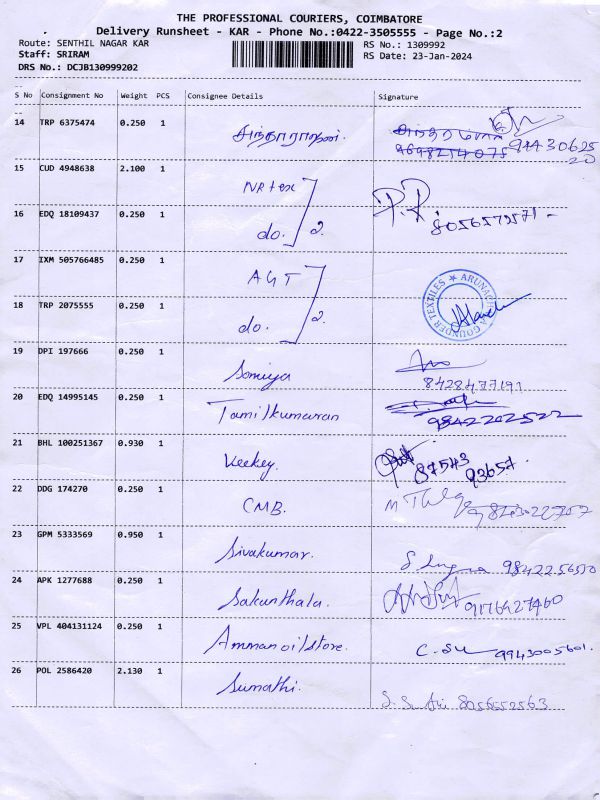 THE PROFESSIONAL COURIERS, COIMBATORE
Delivery Runsheet - KAR - Phone No.:0422-3505555 - Page No.:2
Route: SENTHIL NAGAR KAR RS No.: 1309992
Staff: SRIRAM RS Date: 23-Jan-2024
DRS No.: DCJB130999202
S No Consignment No Weight PCS Consignee Details Signature
14 TRP 6375474 0.250 1
15 CUD 4948638 2.100 1 NR tex
16 EDQ 18109437 0.250 1 do. 2. P.P. 8056579571
17 IXM 505766485 0.250 1 AGT
18 TRP 2075555 0.250 1 do. 2. ARUNACHALA GOUNDER TEXTILES
19 DPI 197666 0.250 1 Somiya 8428477191
20 EDQ 14995145 0.250 1 Tamilkumaran 9842202522
21 BHL 100251367 0.930 1 Veekey. 87543 93657.
22 DDG 174270 0.250 1 CMB.
23 GPM 5333569 0.950 1 Sivakumar.
24 APK 1277688 0.250 1 Sakunthala.
25 VPL 404131124 0.250 1 Amman oil store. C. Su 9943005601.
26 POL 2586420 2.130 1 Sumathi. 8056552563